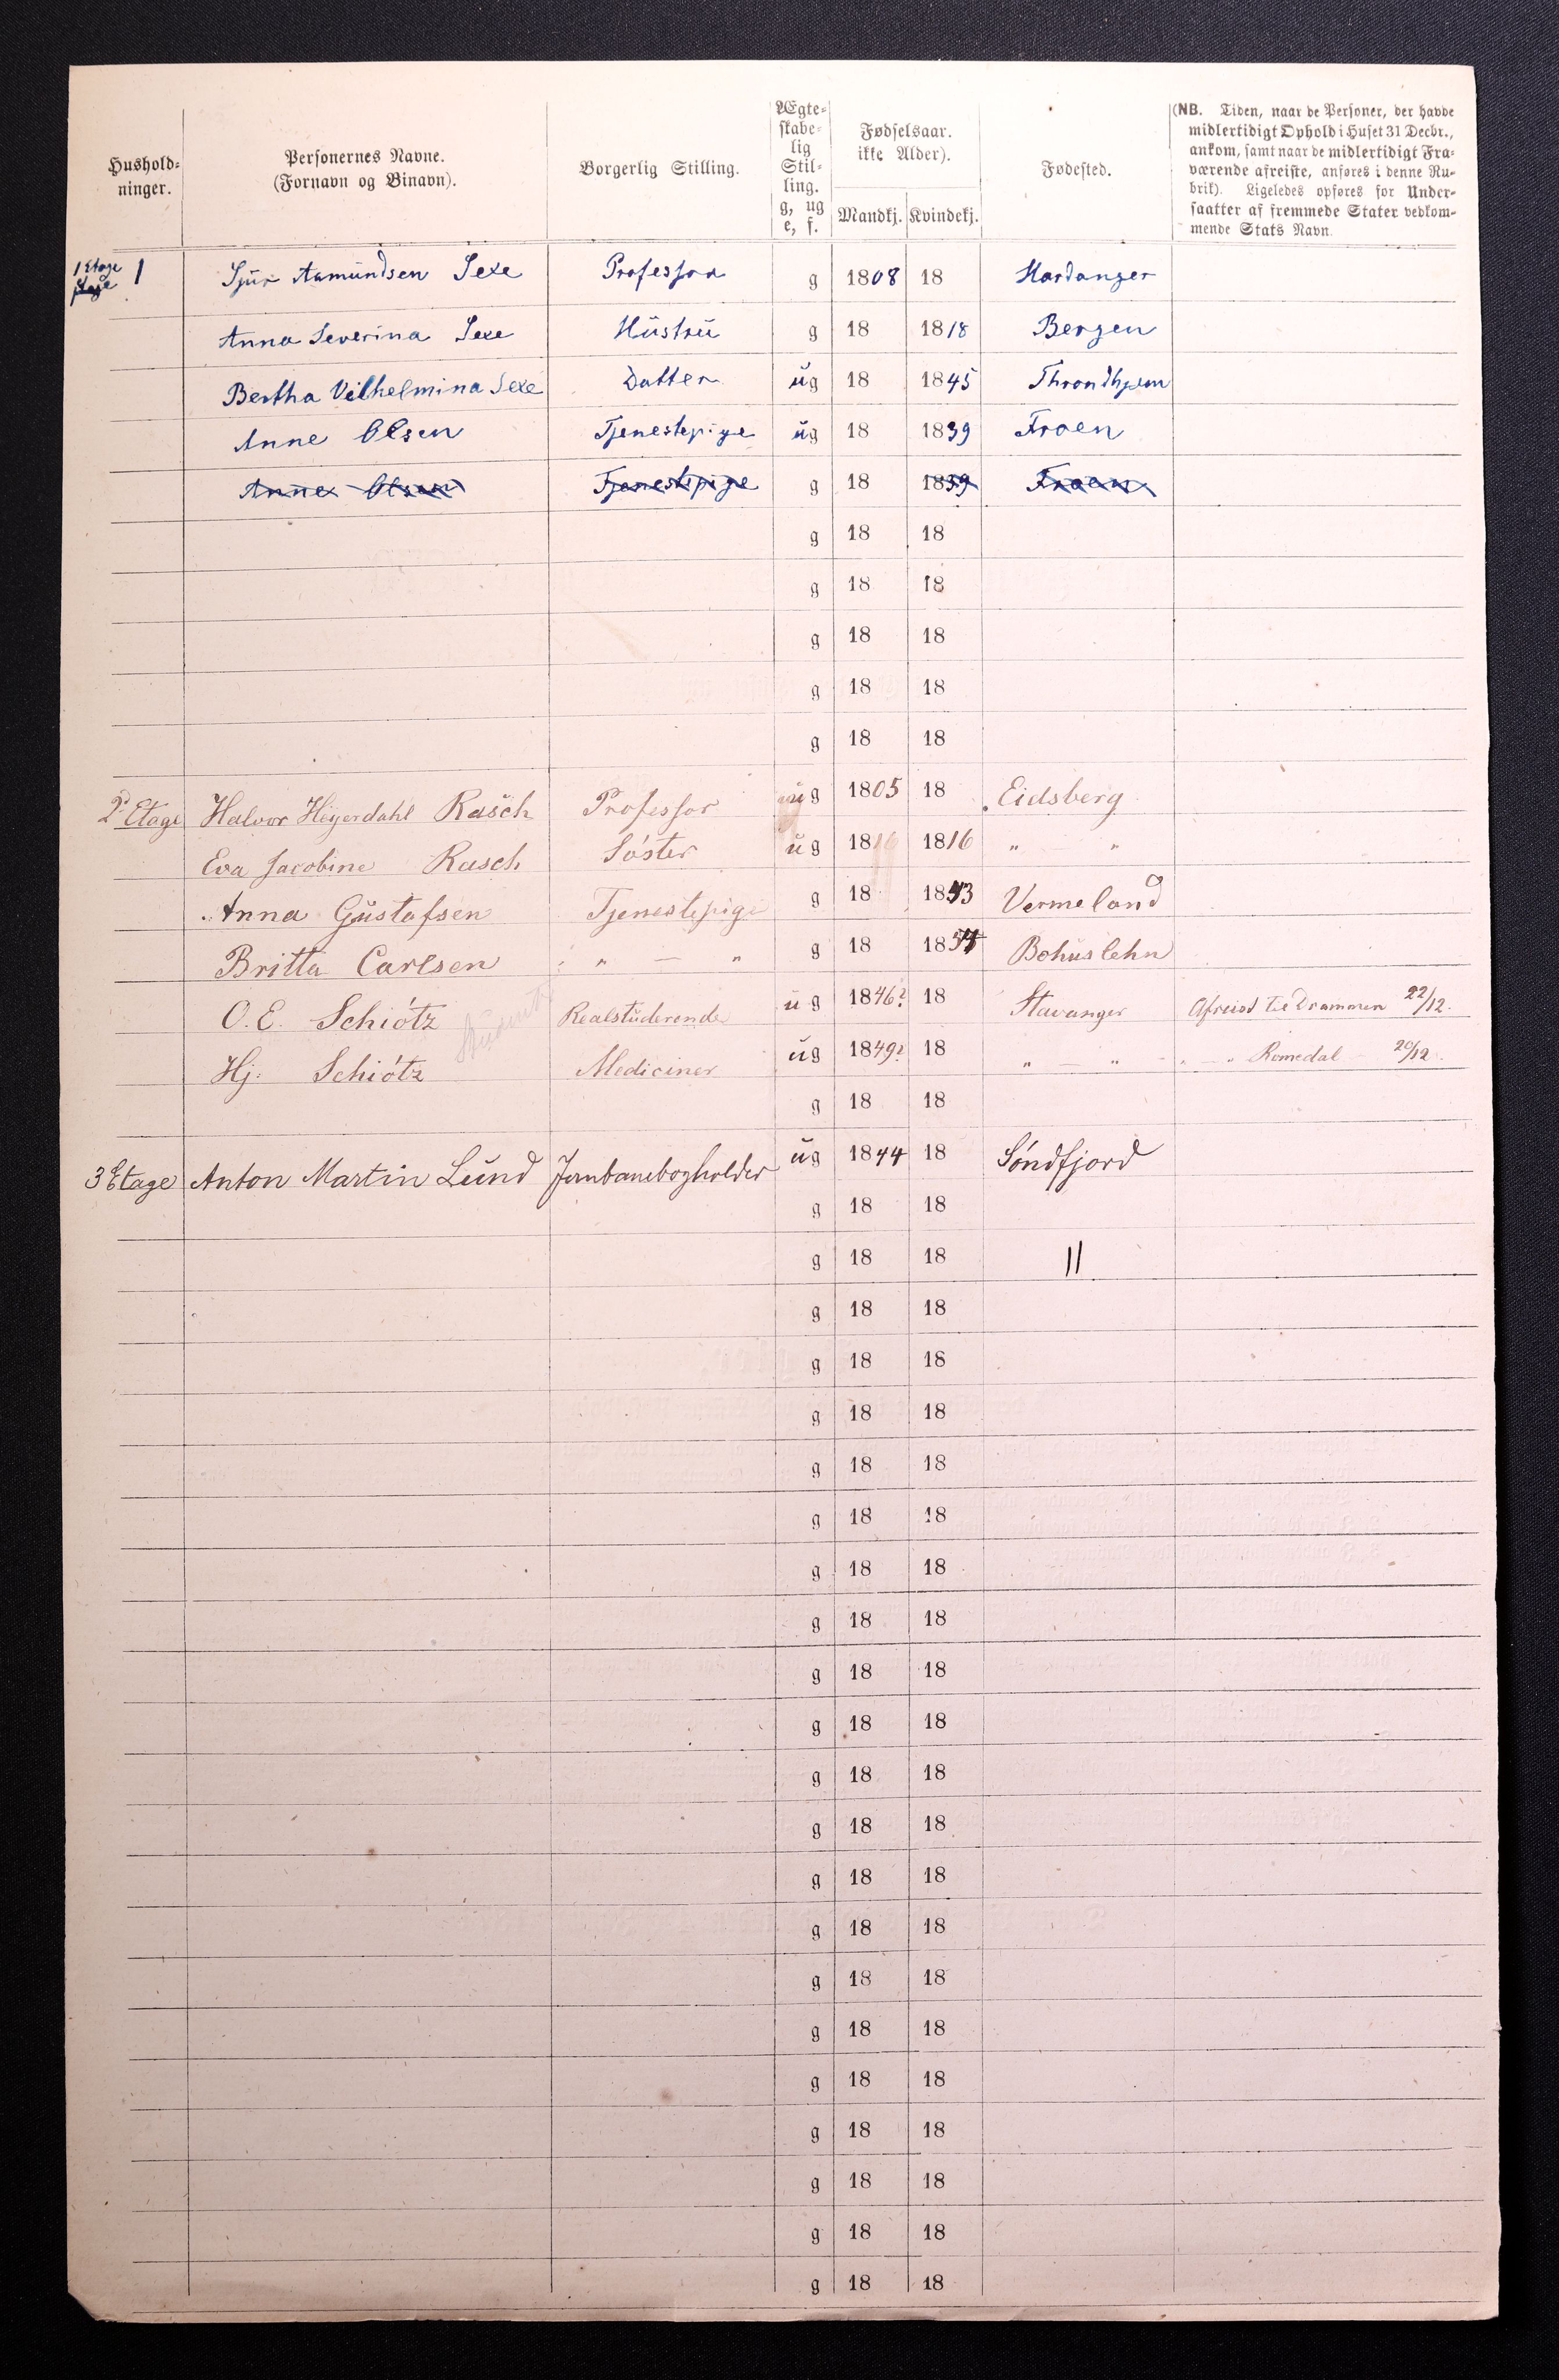 Hushold-
ninger.
Personernes Navne.
(Fornavn og Binavn).
Borgerlig Stilling.
Ægte-
skabe-
lig
Stil-
ling.
g, ug
e, f.
Fødselsaar.
ikke Alder).
Mandkj. Kvindekj.
Fødested.
(NB. Tiden, naar de Personer, der havde
midlertidigt Ophold i Huset 31 Decbr.,
ankom, samt naar de midlertidigt Fra-
værende afreiste, anføres i denne Ru-
brik). Ligeledes opføres for Under-
saatter af fremmede Stater vedkom-
mende Stats Navn.
1 Etage 1 Sjur Aamundsen Sexe Professor g 1808 18 Hardanger
Anna Severina Sexe Hustru g 18 1818 Bergen
Bertha Vilhelmina Sexe Datter ug 18 1845 Throndhjem
Anne Olsen Tjenestepige ug 18 1839 Froen
Anne Olsen Tjenestepige g 18 1839 Froen
g 18 18
g 18 18
g 18 18
g 18 18
g 18 18
2 Etage Halvor Heyerdahl Rasch Professor ug 1805 18 Eidsberg
Eva Jacobine Rasch Söster ug 1816 1816 " "
Anna Gustafsen Tjenestepige g 18 1843 Vermeland
Britta Carlsen " — " g 18 1854 Bohuslehn
O. E. Schiötz Student Realstuderende ug 1846? 18 Stavanger Afreist til Drammen 22/12.
Hj. Schiötz Mediciner ug 1849? 18 " — " " — " Romedal 20/12.
g 18 18
3 Etage Anton Martin Lund Jernbanebogholder ug 1844 18 Söndfjord
g 18 18
g 18 18 11
g 18 18
g 18 18
g 18 18
g 18 18
g 18 18
g 18 18
g 18 18
g 18 18
g 18 18
g 18 18
g 18 18
g 18 18
g 18 18
g 18 18
g 18 18
g 18 18
g 18 18
g 18 18
g 18 18
g 18 18